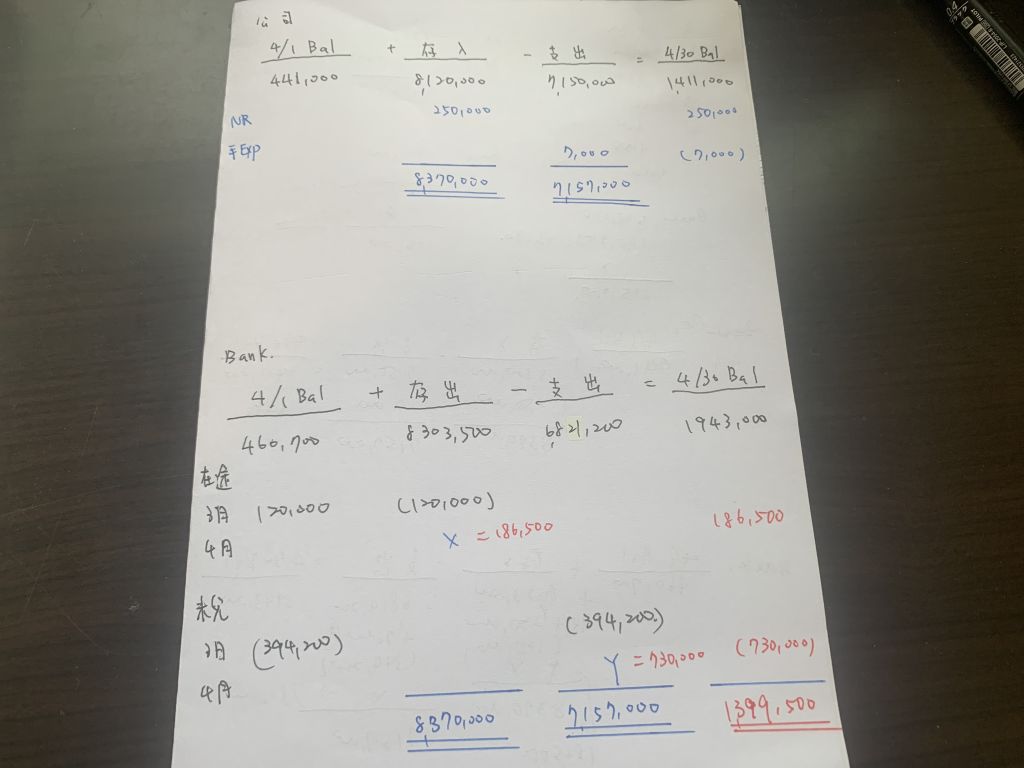 公司
4/1 Bal + 存入 - 支出 = 4/30 Bal
441,000 8,120,000 7,150,000 1,411,000
NR 250,000 250,000
手Exp 7,000 (7,000)
8,370,000 7,157,000
Bank.
4/1 Bal + 存出 - 支出 = 4/30 Bal
460,700 8,303,500 6,821,200 1943,000
在途
3月 120,000 (120,000)
4月 X = 186,500 186,500
未兌
3月 (394,200) (394,200)
4月 Y = 730,000 (730,000)
8,370,000 7,157,000 1,399,500